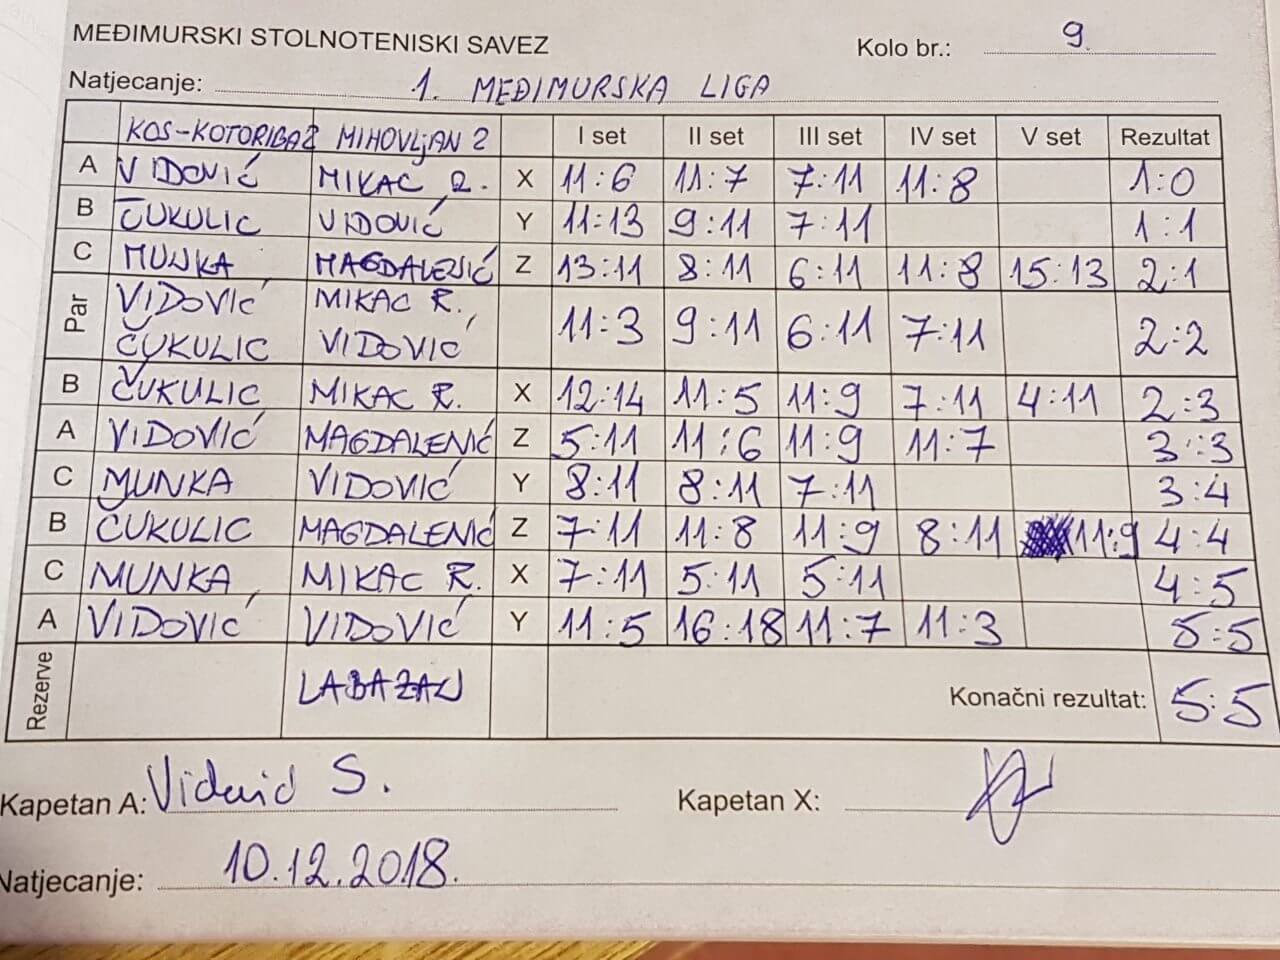 MEĐIMURSKI STOLNOTENISKI SAVEZ
Kolo br.: 9.
Natjecanje: 1. MEĐIMURSKA LIGA
KOS-KOTORIBA2 MIHOVLJAN 2 I set II set III set IV set V set Rezultat
A VIDOVIĆ MIKAC R. X 11:6 11:7 7:11 11:8 1:0
B ČUKULIC VIDOVIĆ Y 11:13 9:11 7:11 1:1
C MUNKA MAGDALENIĆ Z 13:11 8:11 6:11 11:8 15:13 2:1
Par VIDOVIĆ ČUKULIC MIKAC R., VIDOVIĆ 11:3 9:11 6:11 7:11 2:2
B ČUKULIC MIKAC R. X 12:14 11:5 11:9 7:11 4:11 2:3
A VIDOVIĆ MAGDALENIĆ Z 5:11 11:6 11:9 11:7 3:3
C MUNKA VIDOVIĆ Y 8:11 8:11 7:11 3:4
B ČUKULIC MAGDALENIĆ Z 7:11 11:8 11:9 8:11 11:9 4:4
C MUNKA MIKAC R. X 7:11 5:11 5:11 4:5
A VIDOVIĆ VIDOVIĆ Y 11:5 16:18 11:7 11:3 5:5
Rezerve LABAZAN Konačni rezultat: 5:5
Kapetan A: Vidović S. Kapetan X:
Natjecanje: 10.12.2018.